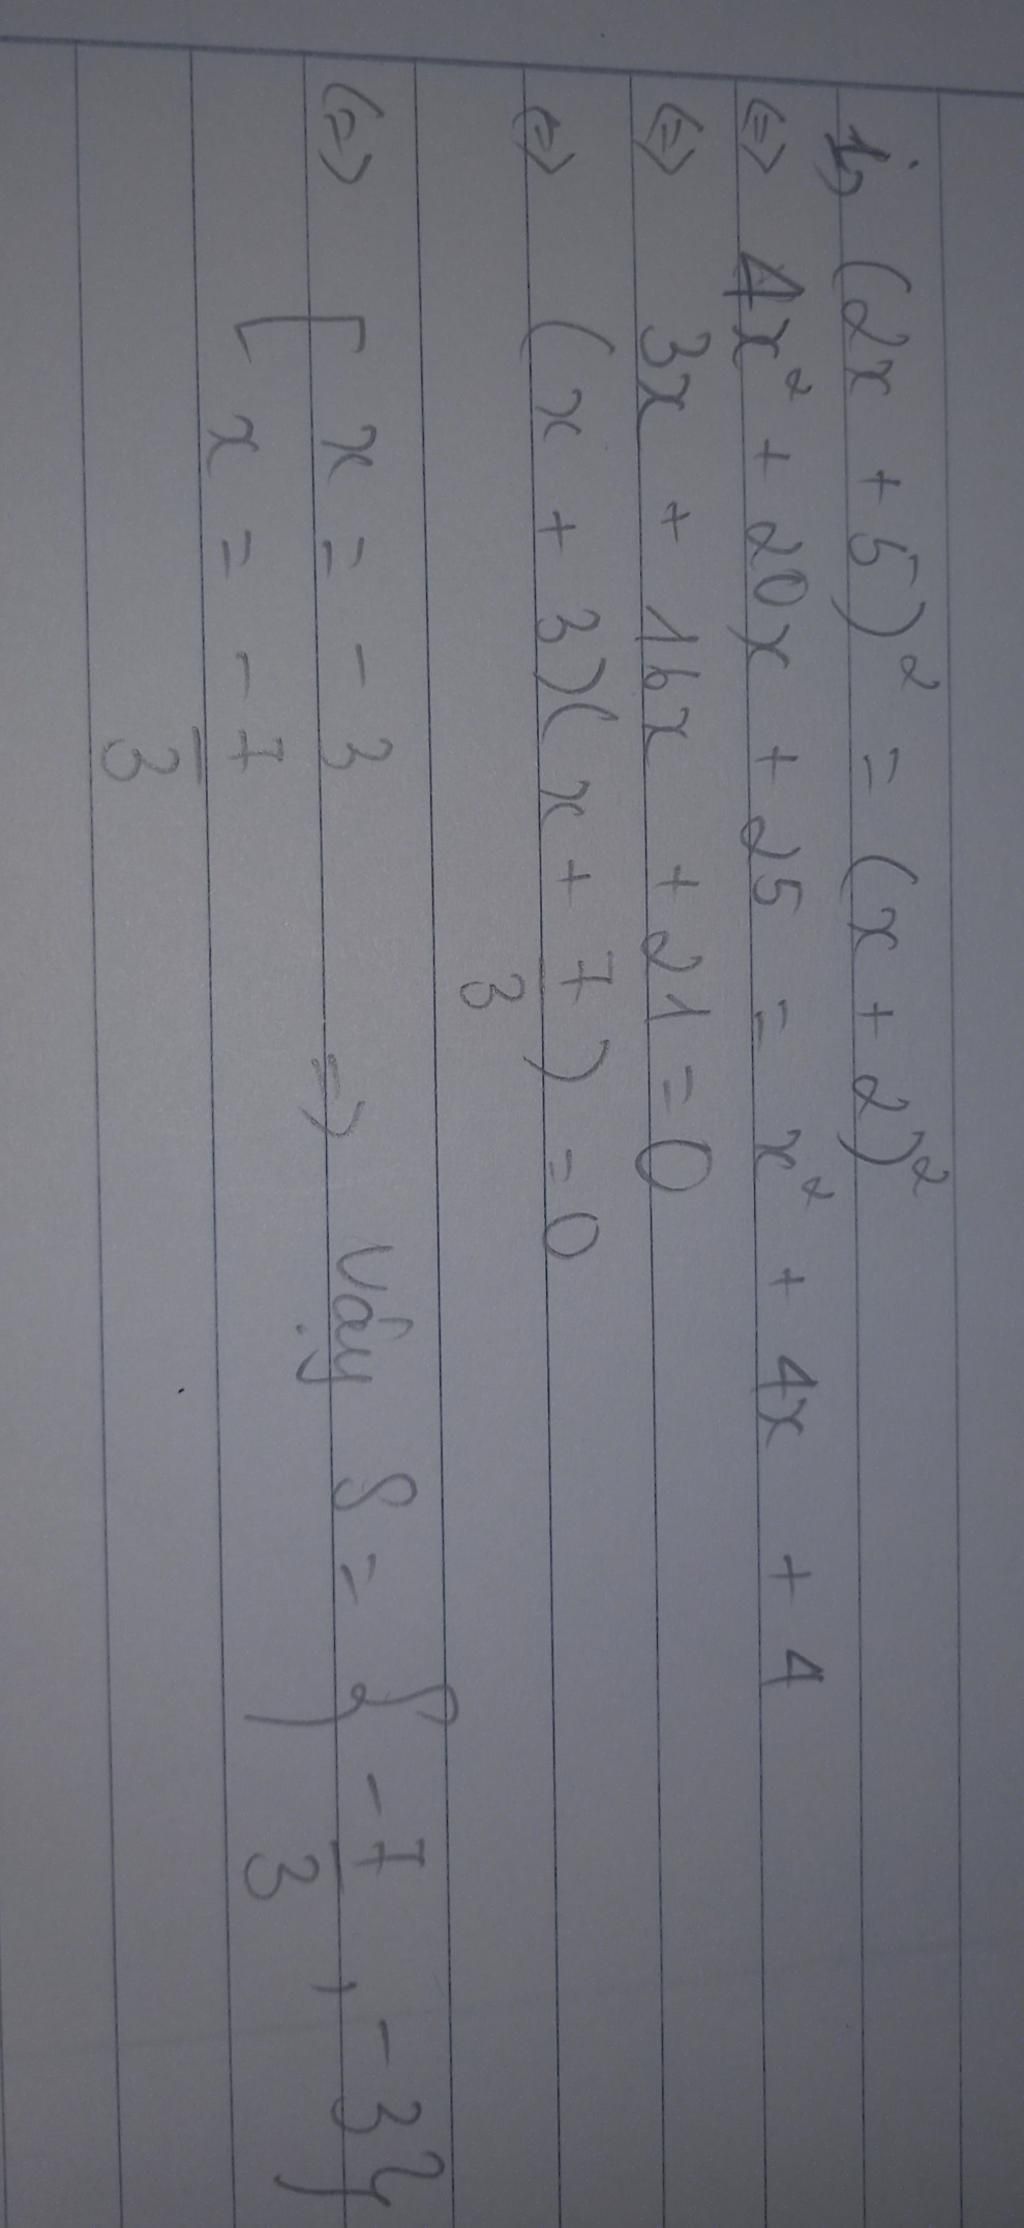 i, (2x + 5)² = (x + 2)²
<=> 4x² + 20x + 25 = x² + 4x + 4
<=> 3x + 16x + 21 = 0
<=> (x + 3)(x + 7/3) = 0
<=> [ x = -3 => Vậy S = { -7/3, -3}
x = -7/3